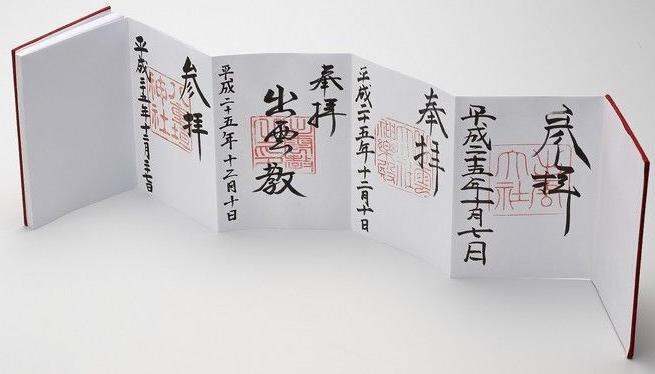 参拝
出雲大社
平成二十五年十月七日
奉拝
平成二十五年十二月十日
奉拝
出雲教
平成二十五年十二月十日
参拝
平成二十五年十二月